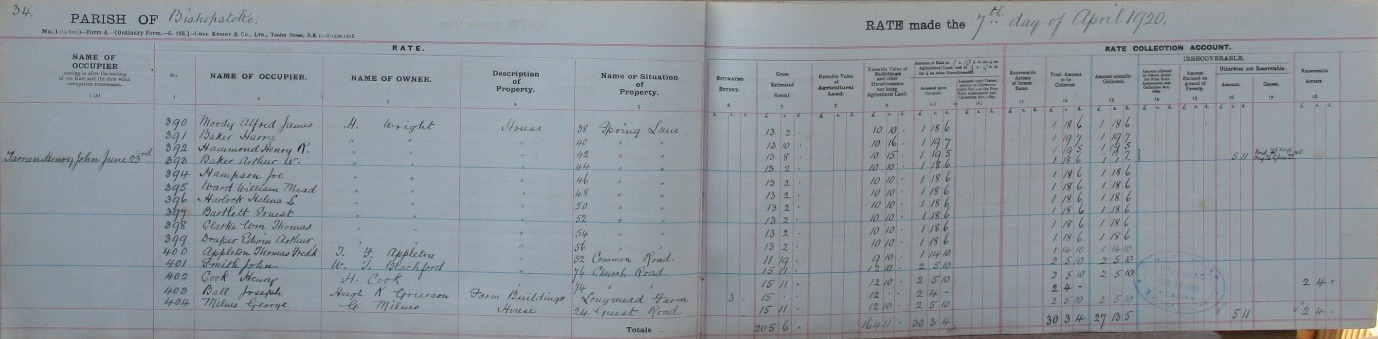 34.
PARISH OF Bishopstoke.
RATE made the 7th day of April 1920.
RATE.
RATE COLLECTION ACCOUNT.
IRRECOVERABLE.
NAME OF OCCUPIER
No. NAME OF OCCUPIER. NAME OF OWNER. Description of Property. Name or Situation of Property. ESTIMATED EXTENT. Gross Estimated Rental Rateable Value of Agricultural Land. Rateable Value of Buildings and other Hereditaments not being Agricultural Land. Total Amount to be Collected. Amount actually Collected. Otherwise not Recoverable. Amount. Causes. Recoverable Arrears
390 Moody Alfred James H. Wright House 38 Spring Lane. 13 2 10 10 1 18 6 1 18 6 1 18 6
391 Baker Harry " " 40 " " 13 10 10 16 1 19 7 1 19 7 1 19 7
392 Hammond Henry R. " " 42 " " 13 8 10 15 1 19 5 1 19 5 1 19 5
Tarran Henry John June 23rd 393 Baker Arthur W. " " 44 " " 13 2 10 10 1 18 6 1 18 6 5 11
394 Hampson Joe " " 46 " " 13 2 10 10 1 18 6 1 18 6 1 18 6
395 Ward William Mead " " 48 " " 13 2 10 10 1 18 6 1 18 6 1 18 6
396 Harlock Helena L " " 50 " " 13 2 10 10 1 18 6 1 18 6 1 18 6
397 Bartlett Ernest " " 52 " " 13 2 10 10 1 18 6 1 18 6 1 18 6
398 Clarke Wm Thomas " " 54 " " 13 2 10 10 1 18 6 1 18 6 1 18 6
399 Draper Edwin Arthur " " 56 " " 13 2 10 10 1 18 6 1 18 6 1 18 6
400 Appleton Thomas Fredk T. F. Appleton " 52 Common Road. 11 19 9 10 1 14 10 1 14 10 1 14 10
401 Smith John W. J. Blackford " 76 Church Road 15 11 12 10 2 5 10 2 5 10 2 5 10
402 Cook Henry H. Cook " 74 " " 15 11 12 10 2 5 10 2 5 10 2 5 10
403 Ball Joseph Hugh K Grierson Farm Buildings Longmead Farm 3 15 12 2 4 - 2 4 - 2 4 -
404 Milnes George G. Milnes House 24 Guest Road. 15 11 12 10 2 5 10 2 5 10 2 5 10
Totals 205 6 164 11 30 3 4 30 3 4 27 13 5 5 11 2 4 -